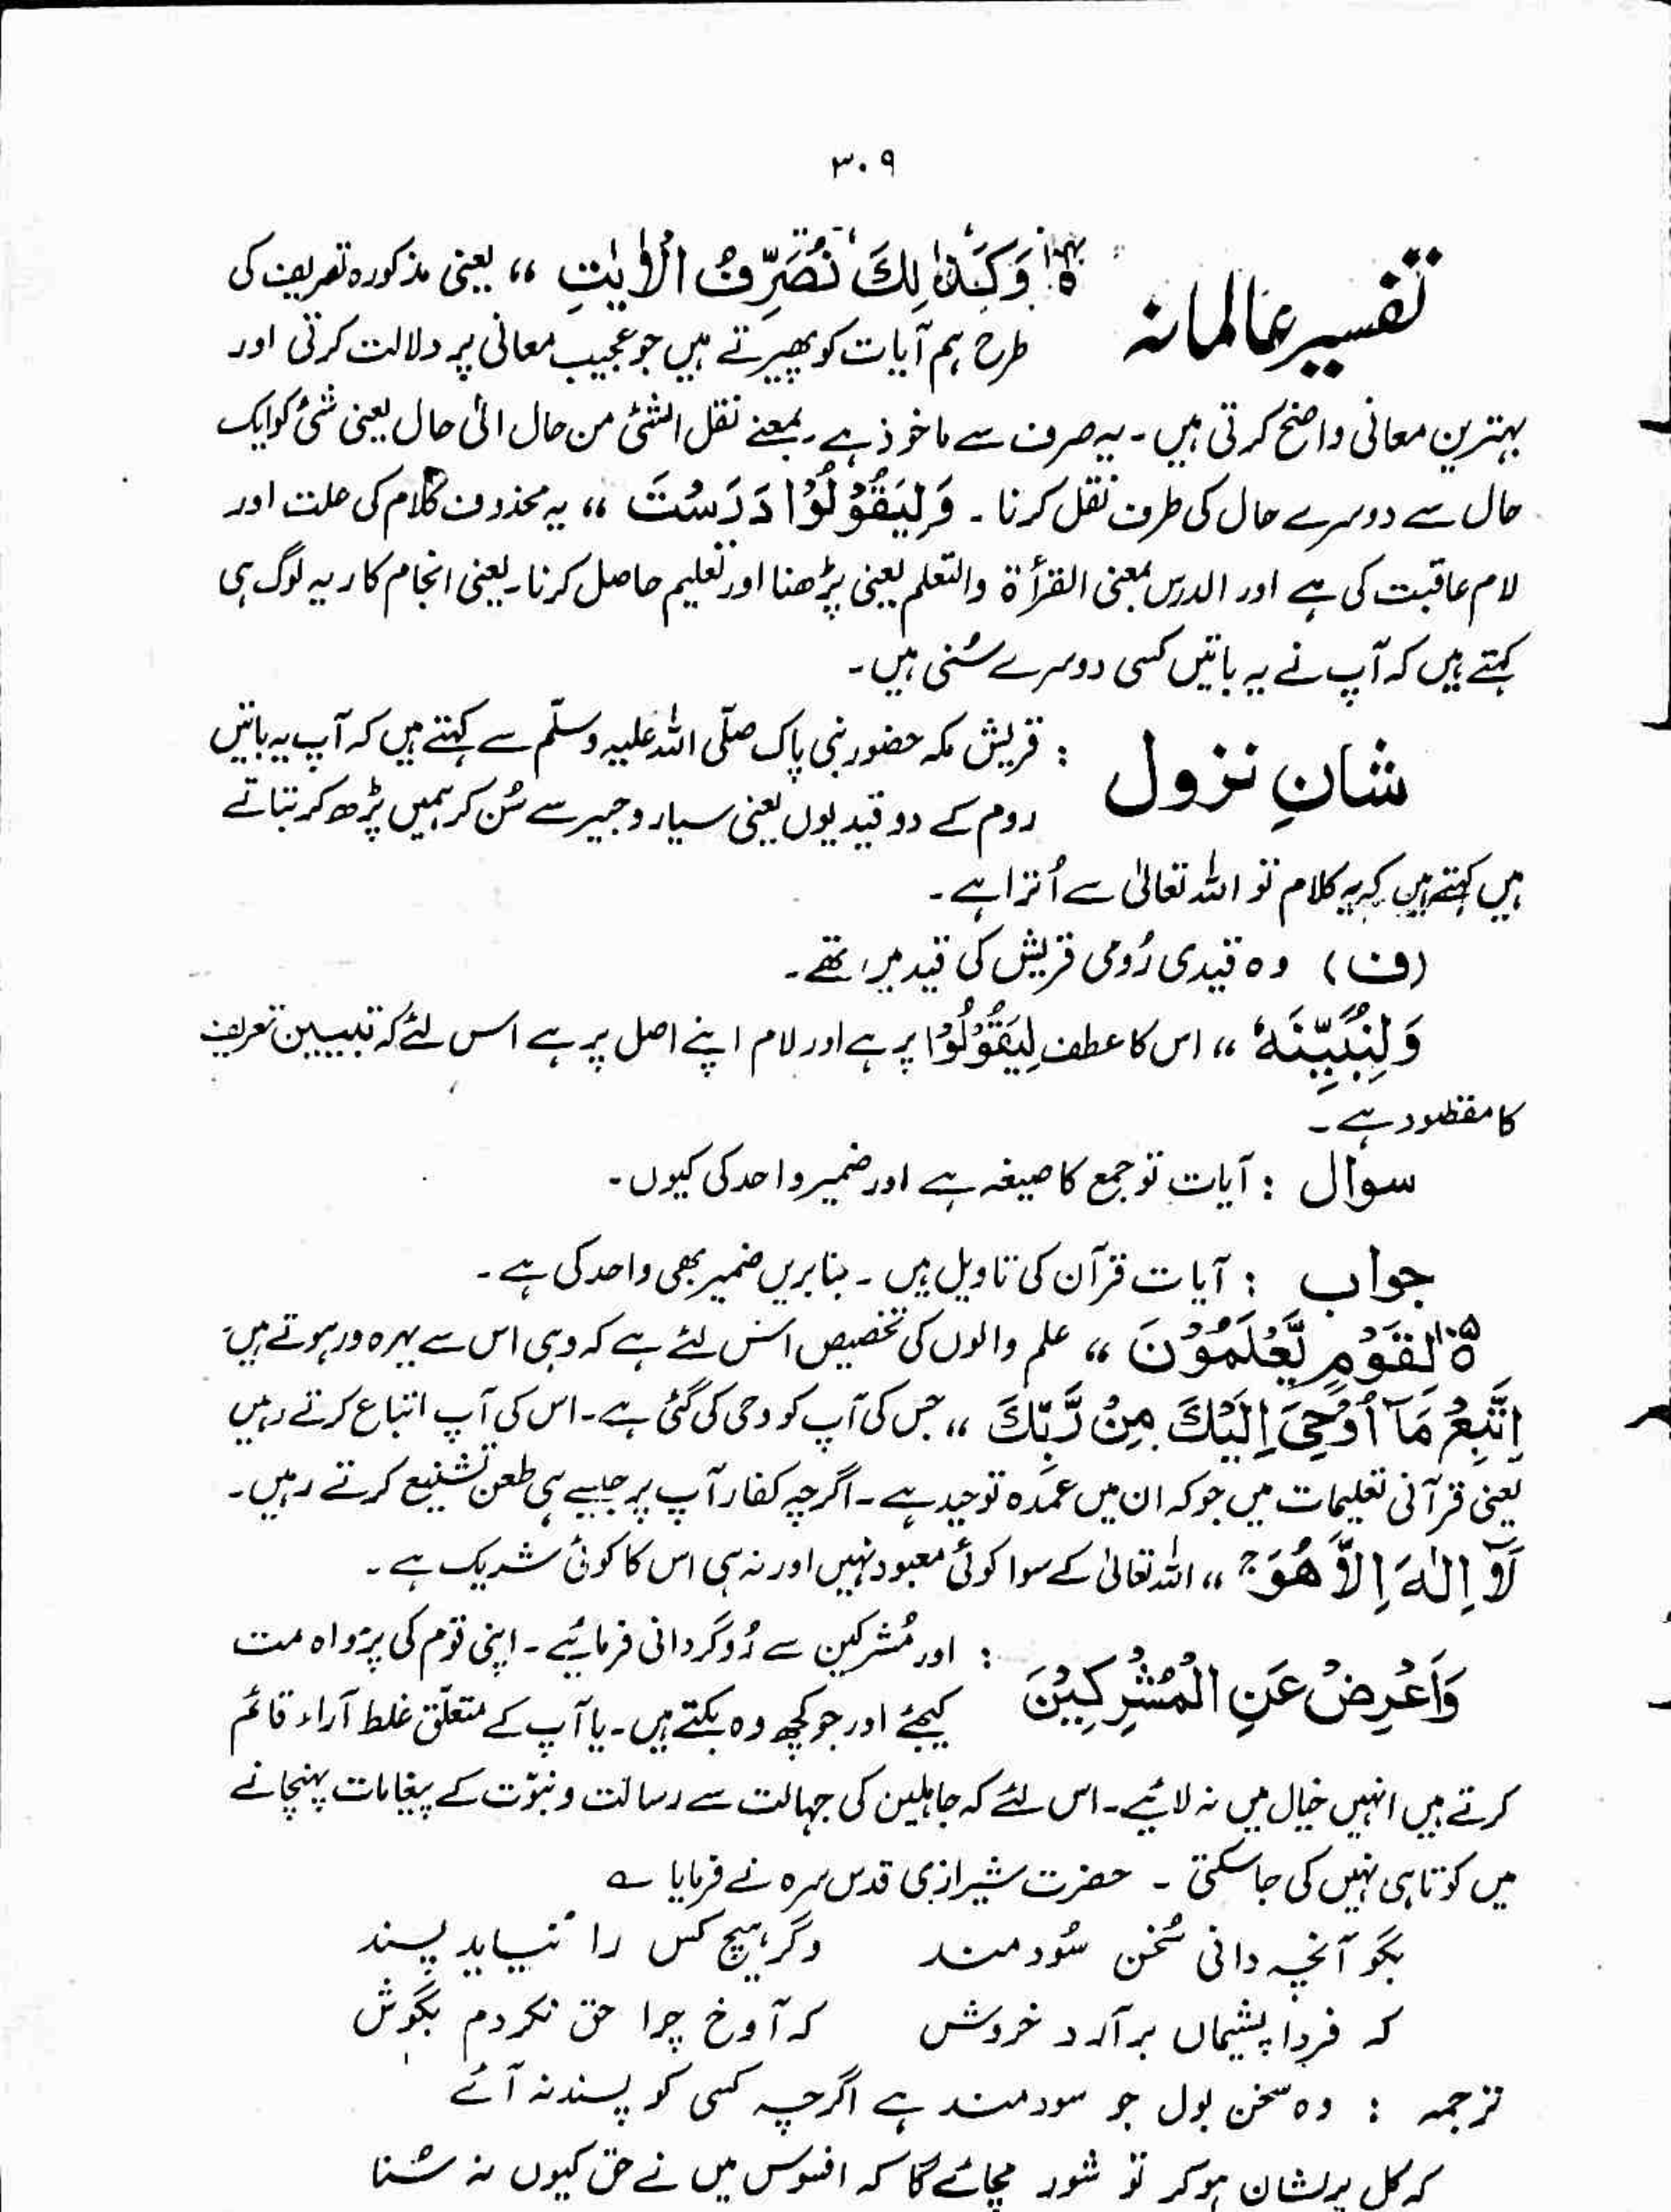 ۳۰۹
تفسیر عالمانہ
وَكَذٰلِكَ نُصَرِّفُ الْاٰيٰتِ ،، یعنی مذکورہ تصریف کی
طرح ہم آیات کو پھیرتے ہیں جو عجیب معانی پر دلالت کرتی اور
بہترین معانی واضح کرتی ہیں ۔ یہ صرف سے ماخوذ ہے ۔ بمعنے نقل الشئی من حال الی حال یعنی شئ کو ایک
حال سے دوسرے حال کی طرف نقل کرنا ۔ وَلِيَقُوْلُوْا دَرَسْتَ ،، یہ محذوف کلام کی علت اور
لام عاقبت کی ہے اور الدرس بمعنی القرأۃ والتعلم یعنی پڑھنا اور تعلیم حاصل کرنا۔ یعنی انجام کار یہ لوگ ہی
کہتے ہیں کہ آپ نے یہ باتیں کسی دوسرے سُنی ہیں ۔
شانِ نزول : قریش مکہ حضور نبی پاک صلّی اللہ علیہ وسلّم سے کہتے ہیں کہ آپ یہ باتیں
روم کے دو قیدیوں یعنی سیار و جبیر سے سُن کر ہمیں پڑھ کر بتاتے
ہیں کہتے ہیں کہ یہ کلام تو اللہ تعالیٰ سے اُترا ہے ۔
(ف) وہ قیدی رُومی قریش کی قید میں تھے ۔
وَلِنُبَيِّنَهٗ ،، اس کا عطف لِيَقُوْلُوْا پر ہے اور لام اپنے اصل پر ہے اس لئے کہ تبیین تصریف
کا مقصود ہے ۔
سوال : آیات تو جمع کا صیغہ ہے اور ضمیر واحد کی کیوں ۔
جواب : آیات قرآن کی تاویل ہیں ۔ بنا بریں ضمیر بھی واحد کی ہے ۔
۱۰۵ لِقَوْمٍ يَّعْلَمُوْنَ ،، علم والوں کی تخصیص اس لئے ہے کہ وہی اس سے بہرہ ور ہوتے ہیں
اِتَّبِعْ مَآ اُوْحِيَ اِلَيْكَ مِنْ رَّبِّكَ ،، جس کی آپ کو وحی کی گئی ہے ۔ اس کی آپ اتباع کرتے رہیں
یعنی قرآنی تعلیمات میں جو کہ ان میں عمدہ توحید ہے ۔ اگرچہ کفار آپ پر جیسے ہی طعن تشنیع کرتے رہیں ۔
لَآ اِلٰهَ اِلَّا هُوَ ۚ ،، اللہ تعالیٰ کے سوا کوئی معبود نہیں اور نہ ہی اس کا کوئی شریک ہے ۔
وَاَعْرِضْ عَنِ الْمُشْرِكِيْنَ : اور مُشرکین سے رُوگردانی فرمائیے ۔ اپنی قوم کی پرواہ مت
کیجئے اور جو کچھ وہ بکتے ہیں ۔ یا آپ کے متعلّق غلط آراء قائم
کرتے ہیں انہیں خیال میں نہ لائیے ۔ اس لئے کہ جاہلین کی جہالت سے رسالت و نبوّت کے پیغامات پہنچانے
میں کوتاہی نہیں کی جا سکتی ۔ حضرت شیرازی قدس سرہ نے فرمایا ؎
بگو آنچہ دانی سُخن سُود مند وگر ہیچ کس را نیاید پسند
کہ فردا پشیماں برآرد خروش کہ آوخ چرا حق نکردم بگوش
ترجمہ : وہ سخن بول جو سود مند ہے اگرچہ کسی کو پسند نہ آئے
کہ کل پریشان ہو کر تو شور مچائے گا کہ افسوس میں نے حق کیوں نہ سُنا